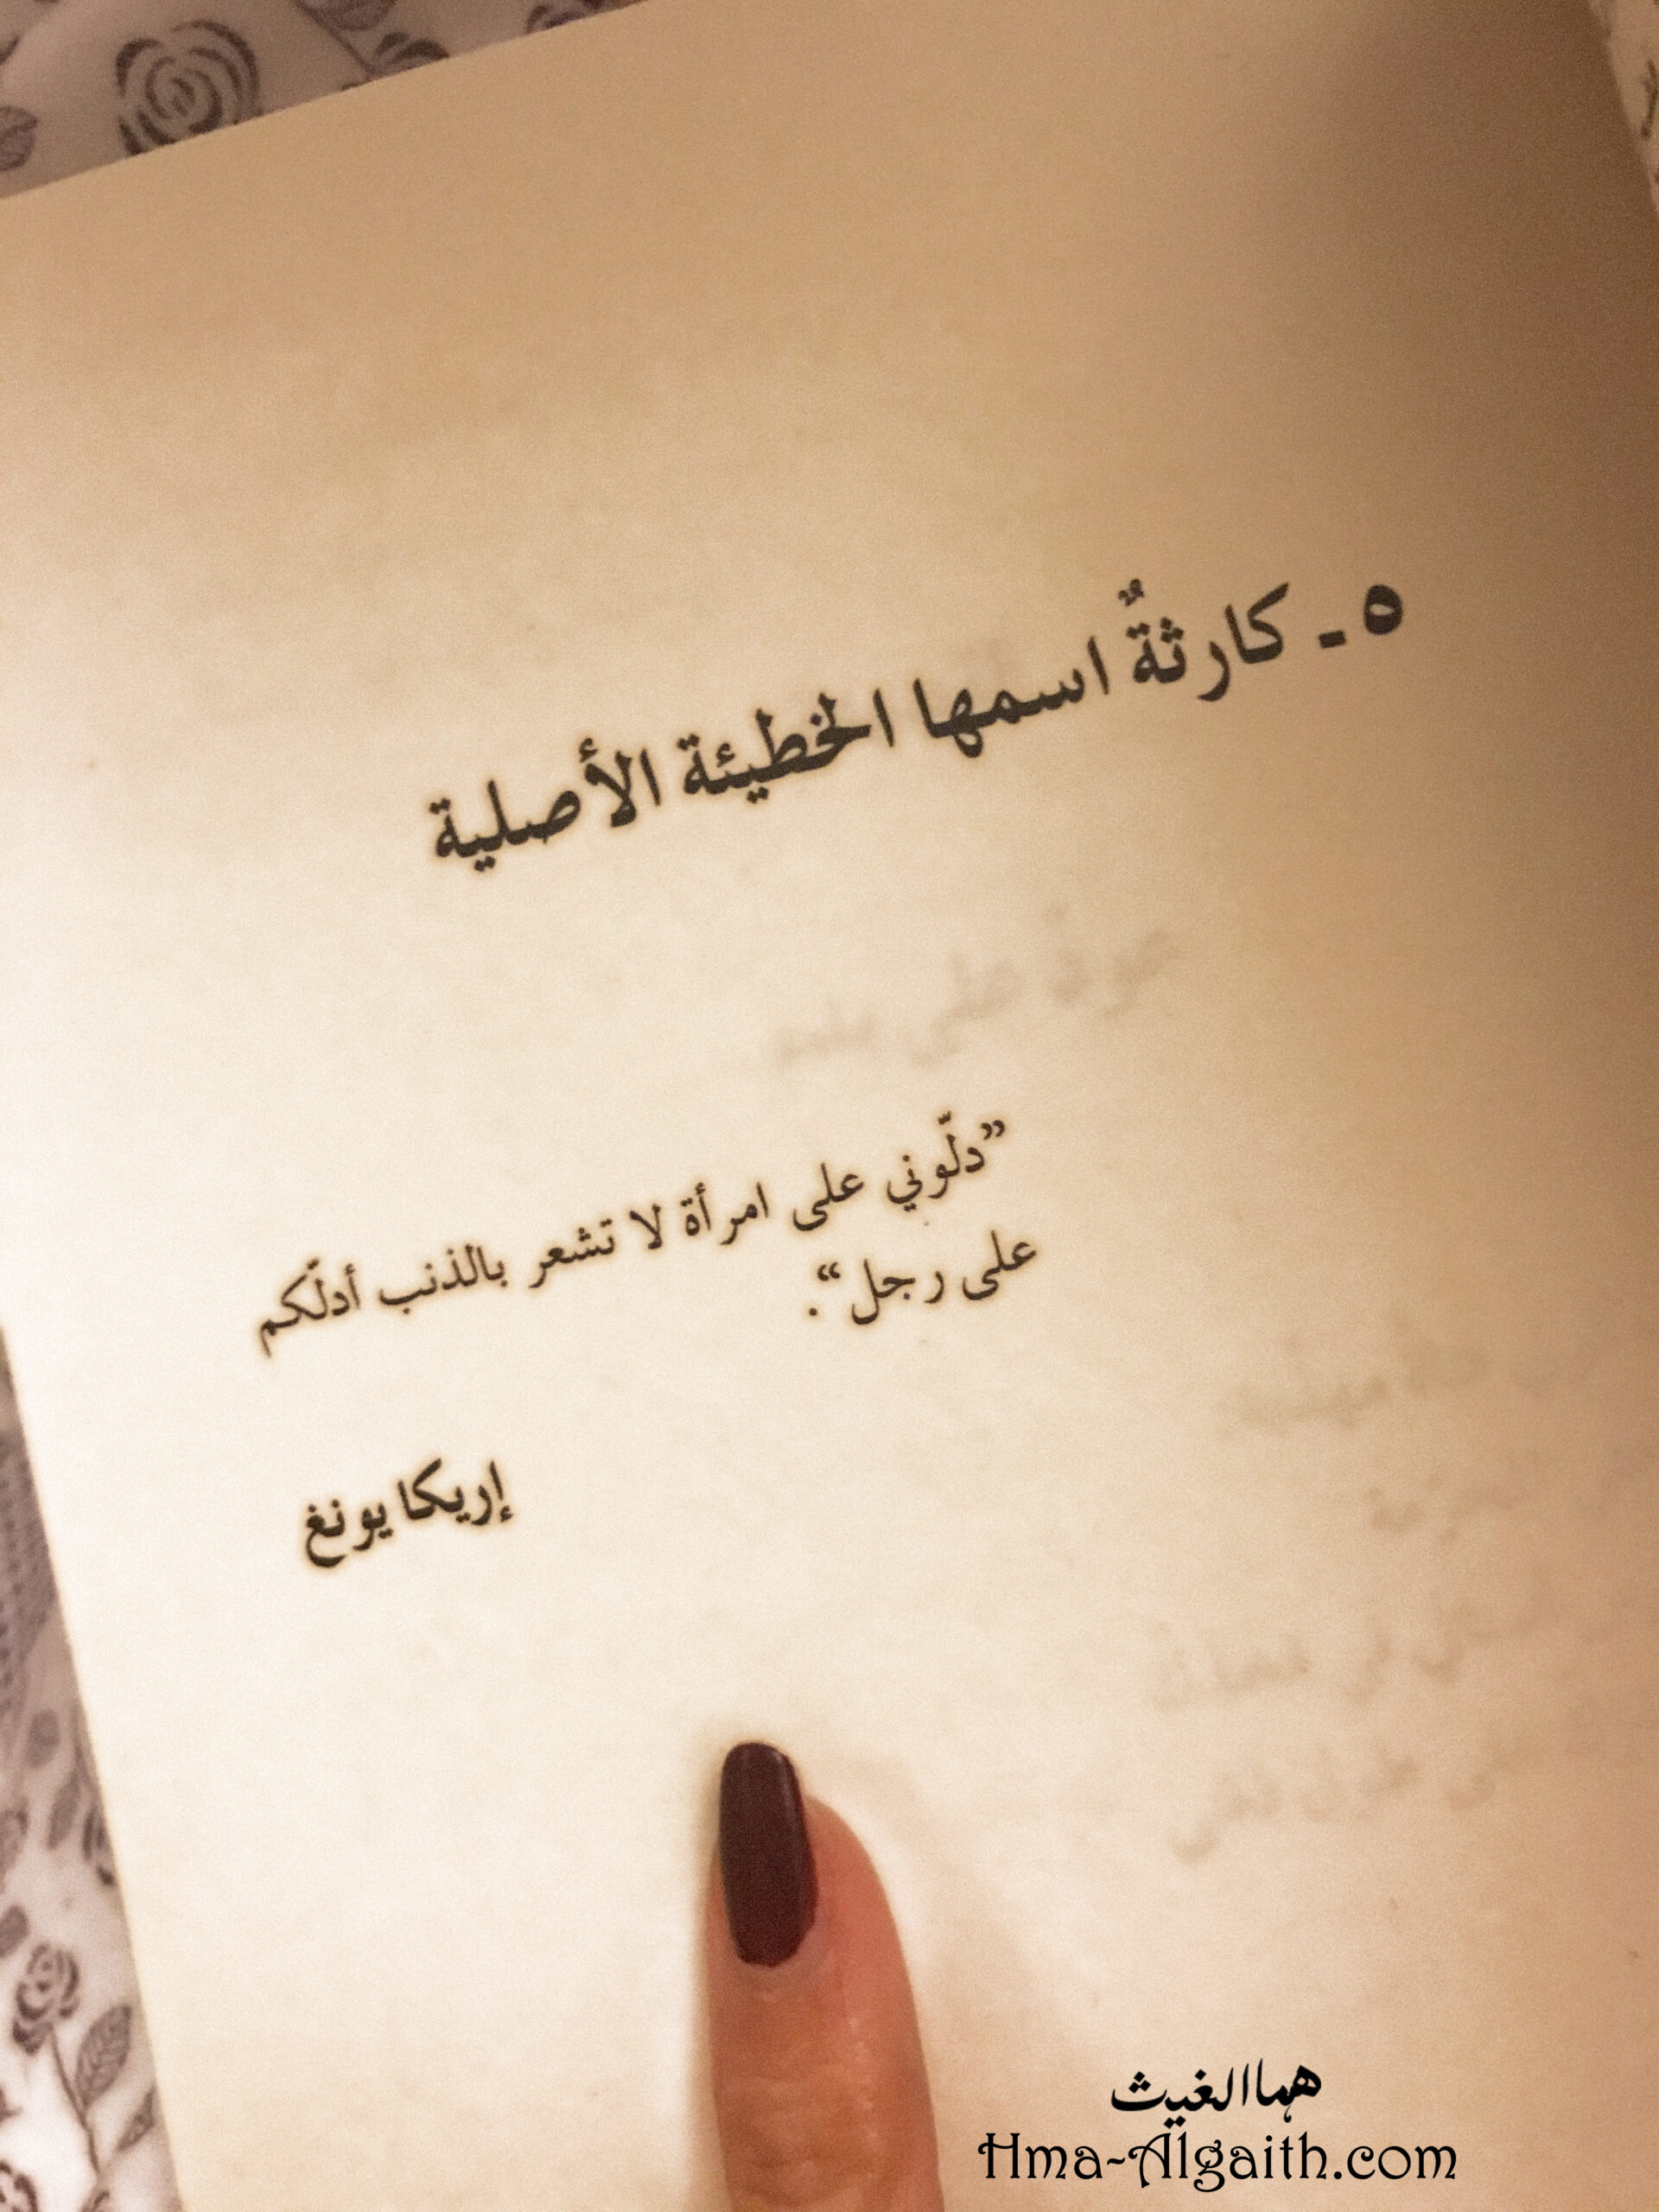 ٥ - كارثةٌ اسمها الخطيئة الأصلية
”دلّوني على امرأة لا تشعر بالذنب أدلّكم
على رجل“.
إريكا يونغ
هماالغيث
Hma-Algaith.com